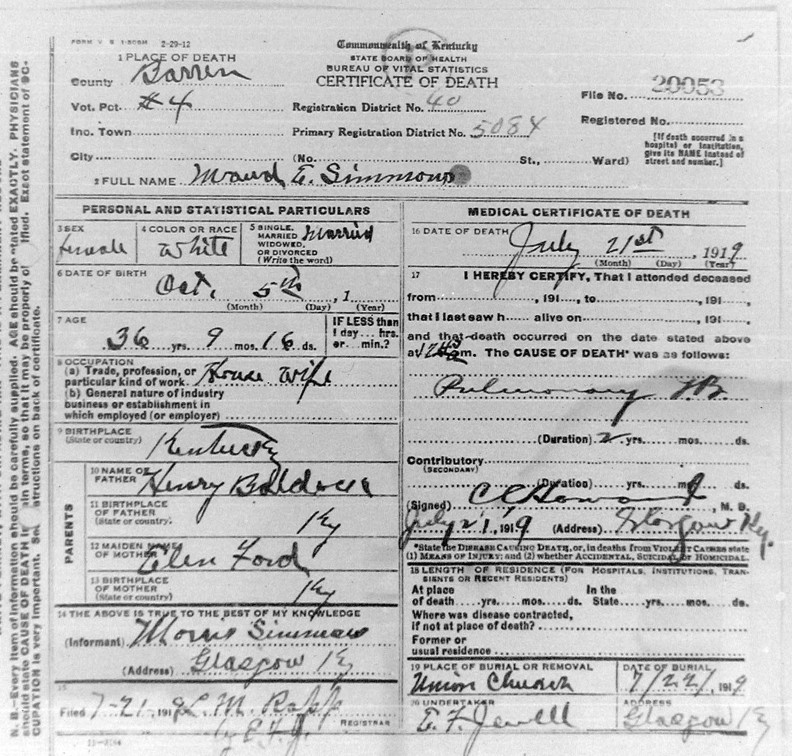 FORM V. S. 1-50M 2-29-12
Commonwealth of Kentucky
STATE BOARD OF HEALTH
BUREAU OF VITAL STATISTICS
CERTIFICATE OF DEATH
1 PLACE OF DEATH
County Barren
Vot. Pct. #4
Inc. Town
City (No. St., Ward)
Registration District No. 40
Primary Registration District No. 5084
File No. 20053
Registered No.
[If death occurred in a
hospital or institution,
give its NAME instead of
street and number.]
2 FULL NAME Maud E. Simmons
PERSONAL AND STATISTICAL PARTICULARS
3 SEX
Female
4 COLOR OR RACE
White
5 SINGLE,
MARRIED
WIDOWED,
OR DIVORCED
(Write the word)
Married
6 DATE OF BIRTH
Oct. 5th, 1
(Month) (Day) (Year)
7 AGE
36 yrs. 9 mos. 16 ds.
IF LESS than
1 day... hrs.
or... min.?
8 OCCUPATION
(a) Trade, profession, or
particular kind of work House wife
(b) General nature of industry
business or establishment in
which employed (or employer)
9 BIRTHPLACE
(State or country)
Kentucky
PARENTS
10 NAME OF
FATHER Henry
11 BIRTHPLACE
OF FATHER
(State or country)
Ky
12 MAIDEN NAME
OF MOTHER Elen Ford
13 BIRTHPLACE
OF MOTHER
(State or country)
Ky
14 THE ABOVE IS TRUE TO THE BEST OF MY KNOWLEDGE
(Informant) Morris Simmons
(Address) Glasgow Ky
15
Filed 7-21, 1919 L. M. Rapp
REGISTRAR
by E.F.J.
MEDICAL CERTIFICATE OF DEATH
16 DATE OF DEATH
July 21st, 1919
(Month) (Day) (Year)
17 I HEREBY CERTIFY, That I attended deceased
from, 191, to, 191,
that I last saw h alive on, 191,
and that death occurred on the date stated above
at m. The CAUSE OF DEATH* was as follows:
Pulmonary TB
(Duration) 2 yrs. mos. ds.
Contributory
(SECONDARY)
(Duration) yrs. mos. ds.
(Signed) C C Howard, M. D.
July 21, 1919 (Address) Glasgow Ky.
*State the DISEASE CAUSING DEATH, or, in deaths from VIOLENT CAUSES state
(1) MEANS OF INJURY; and (2) whether ACCIDENTAL, SUICIDAL or HOMICIDAL.
18 LENGTH OF RESIDENCE (FOR HOSPITALS, INSTITUTIONS, TRAN-
SIENTS OR RECENT RESIDENTS)
At place In the
of death yrs. mos. ds. State yrs. mos. ds.
Where was disease contracted,
if not at place of death?
Former or
usual residence
19 PLACE OF BURIAL OR REMOVAL
Union Church
DATE OF BURIAL
7/22/, 1919
20 UNDERTAKER
E. F. Jewell
ADDRESS
Glasgow Ky
N. B.—Every item of information should be carefully supplied. AGE should be stated EXACTLY. PHYSICIANS
should state CAUSE OF DEATH in plain terms, so that it may be properly Exact statement of OC-
CUPATION is very important. See instructions on back of certificate.